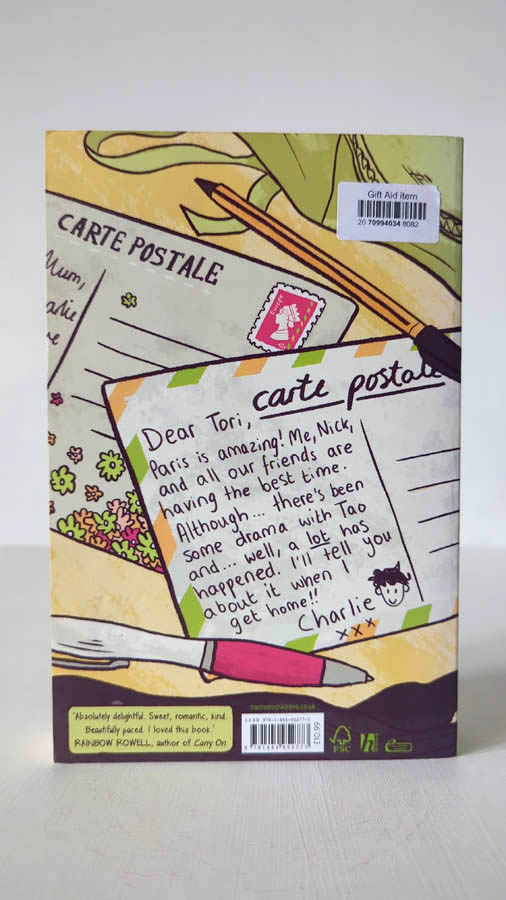 Gift Aid item
20 70994034 8082
CARTE POSTALE
Mum,
Europe
carte postale
Dear Tori,
Paris is amazing! Me, Nick,
and all our friends are
having the best time.
Although... there's been
some drama with Tao
and... well, a lot has
happened. I'll tell you
about it when I
get home!!
Charlie
xxx
'Absolutely delightful. Sweet, romantic, kind.
Beautifully paced. I loved this book.'
RAINBOW ROWELL, author of Carry On
hachettechildrens.co.uk
£10.99
FSC
h